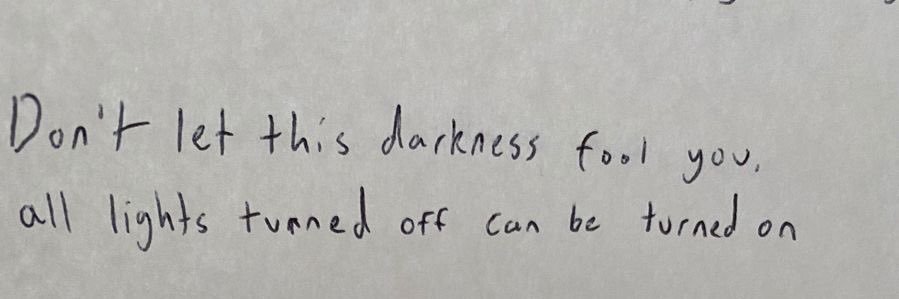 Don't let this darkness fool you.
all lights turned off can be turned on